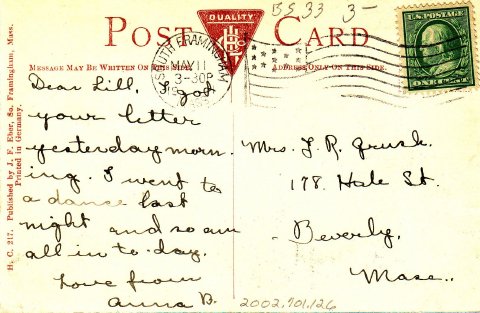 BS 33 3-
POST CARD
QUALITY
MESSAGE MAY BE WRITTEN ON THIS SIDE
ADDRESS ONLY ON THIS SIDE
SOUTH FRAMINGHAM
MAY 11
3-30P
MASS.
U.S. POSTAGE
ONE CENT
Dear Lill, I got
your letter
yesterday morn
ing. I went to
a dance last
night and so am
all in to-day.
Love from
Anna B.
Mrs. J. R.
178 Hale St.
Beverly,
Mass..
2002.701.126
H. C. 217. Published by J. F. Eber, So. Framingham, Mass.
Printed in Germany.